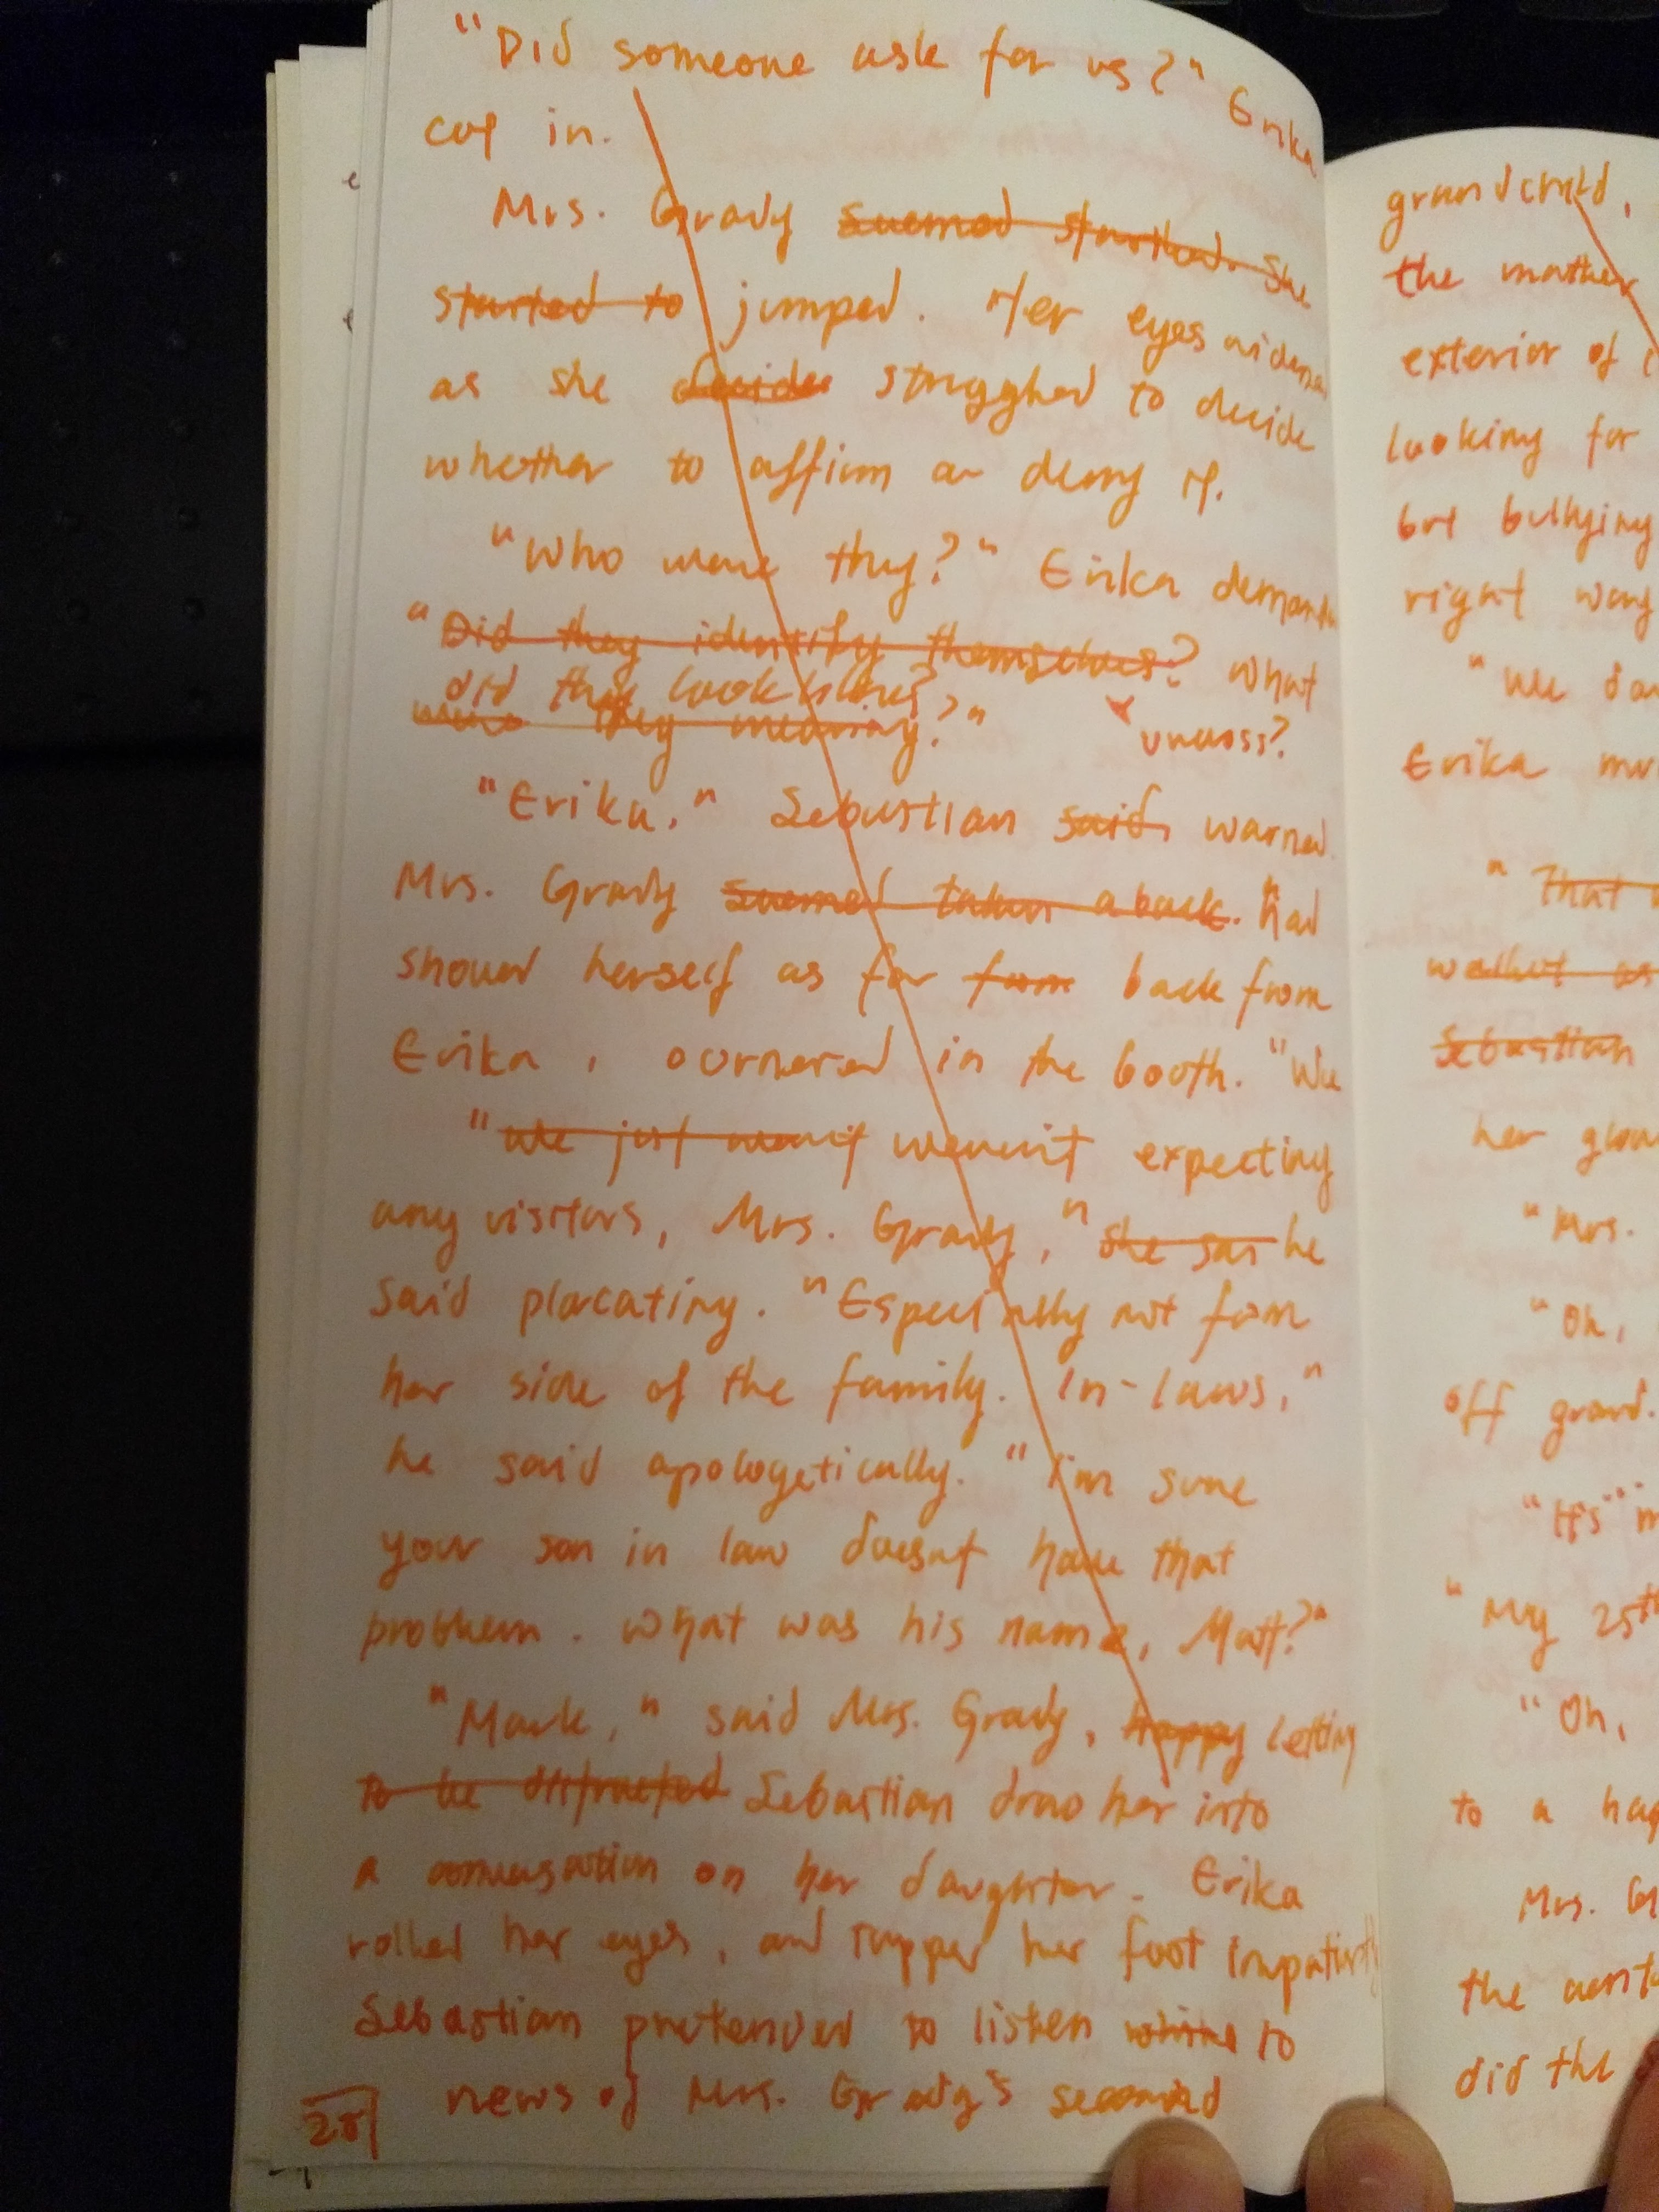 "Did someone ask for us?" Erika
cut in.
Mrs. Grady seemed startled. She
started to jumped. Her eyes widened
as she decide struggled to decide
whether to affirm or deny it.
"Who were they?" Erika demanded
"Did they identify themselves? What
did they look like?
were they wearing?"
"Erika," Sebastian said, warned.
Mrs. Grady seemed taken aback. had
shoved herself as far from back from
Erika, cornered in the booth. "We
"We just weren't weren't expecting
any visitors, Mrs. Grady," she sai he
said placating. "Especially not from
her side of the family. In-laws,"
he said apologetically. "I'm sure
your son in law doesn't have that
problem. What was his name, Matt?"
"Mark," said Mrs. Grady, happy letting
to be distracted Sebastian draw her into
a conversation on her daughter. Erika
rolled her eyes, and tapped her foot impatiently
Sebastian pretended to listen while to
news of Mrs. Grady's second
28
grandchild,
the mother
exterior of
looking for
but bullying
right way
"We
Erika
"That
Sebastian
her
"Mrs.
"Oh,
off guard.
"It's
"My 25th
"Oh,
to a
Mrs.
the
did the